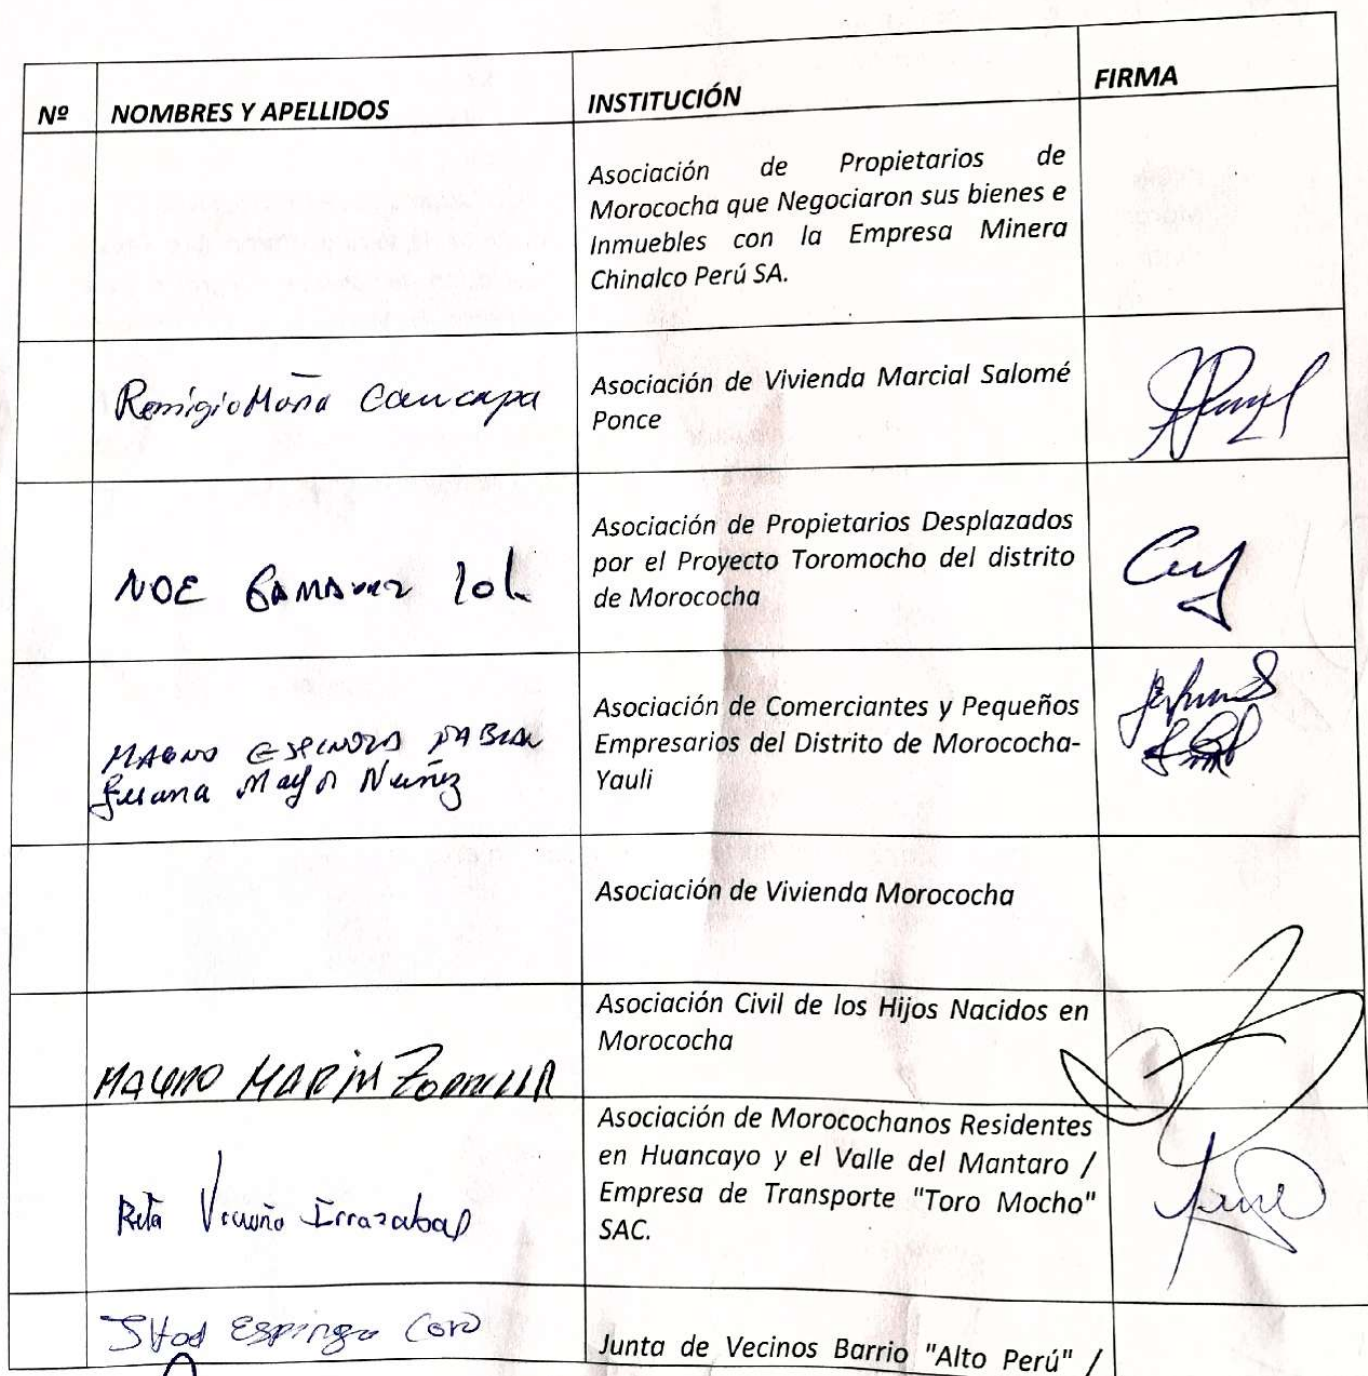 Nº NOMBRES Y APELLIDOS INSTITUCIÓN FIRMA
Asociación de Propietarios de
Morococha que Negociaron sus bienes e
Inmuebles con la Empresa Minera
Chinalco Perú SA.
Remigio Maña Caucapa
Asociación de Vivienda Marcial Salomé
Ponce
NOE
Asociación de Propietarios Desplazados
por el Proyecto Toromocho del distrito
de Morococha
MAGNO ESPINOZA
Susana Mayta Nuñez
Asociación de Comerciantes y Pequeños
Empresarios del Distrito de Morococha-
Yauli
Asociación de Vivienda Morococha
MAURO MARIN ZORRILLA
Asociación Civil de los Hijos Nacidos en
Morococha
Rita Vicuña Irrazabal
Asociación de Morocochanos Residentes
en Huancayo y el Valle del Mantaro /
Empresa de Transporte "Toro Mocho"
SAC.
Espinoza
Junta de Vecinos Barrio "Alto Perú" /